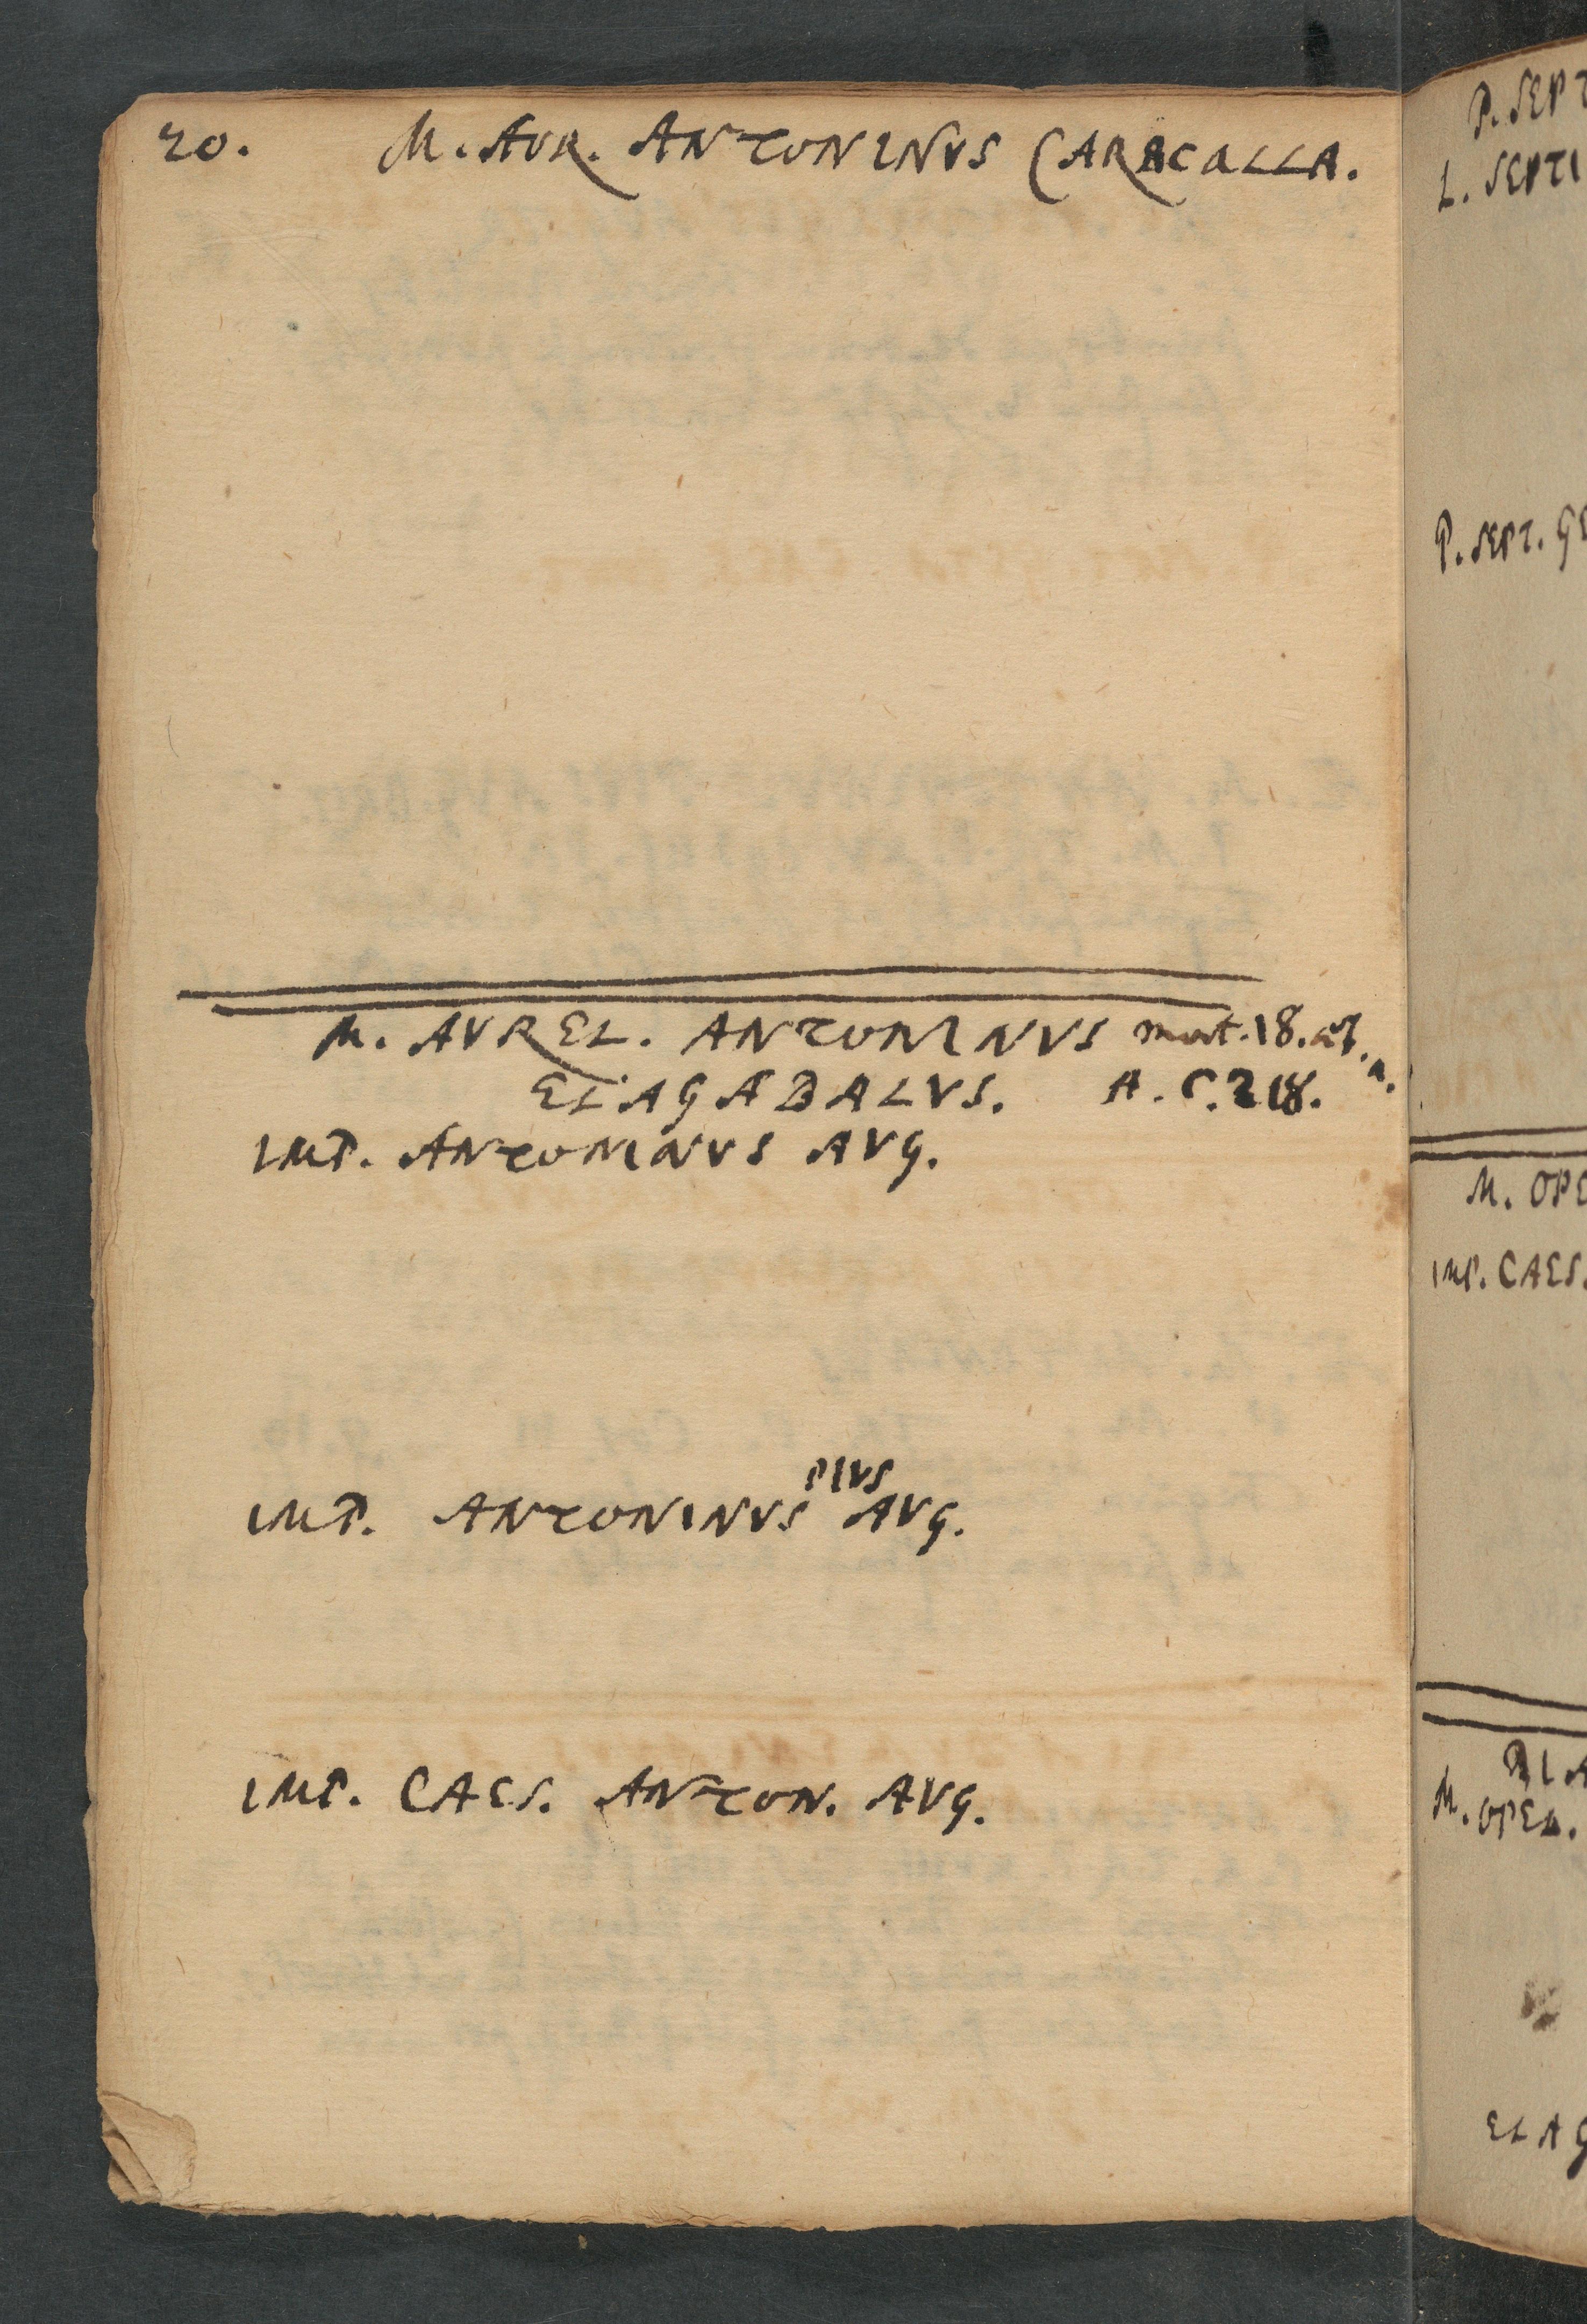 20. M. AVR. ANTONINVS CARACALLA.
M. AVREL. ANTONINVS
ELAGABALVS. A. C. 218.
IMP. ANTONINVS AVG.
PIVS
IMP. ANTONINVS AVG.
IMP. CAES. ANTON. AVG.
P. SEPT
L. SEPTI
P. SEPT. GE
M. OPE
IMP. CAES.
M. OPEL.
ELAG